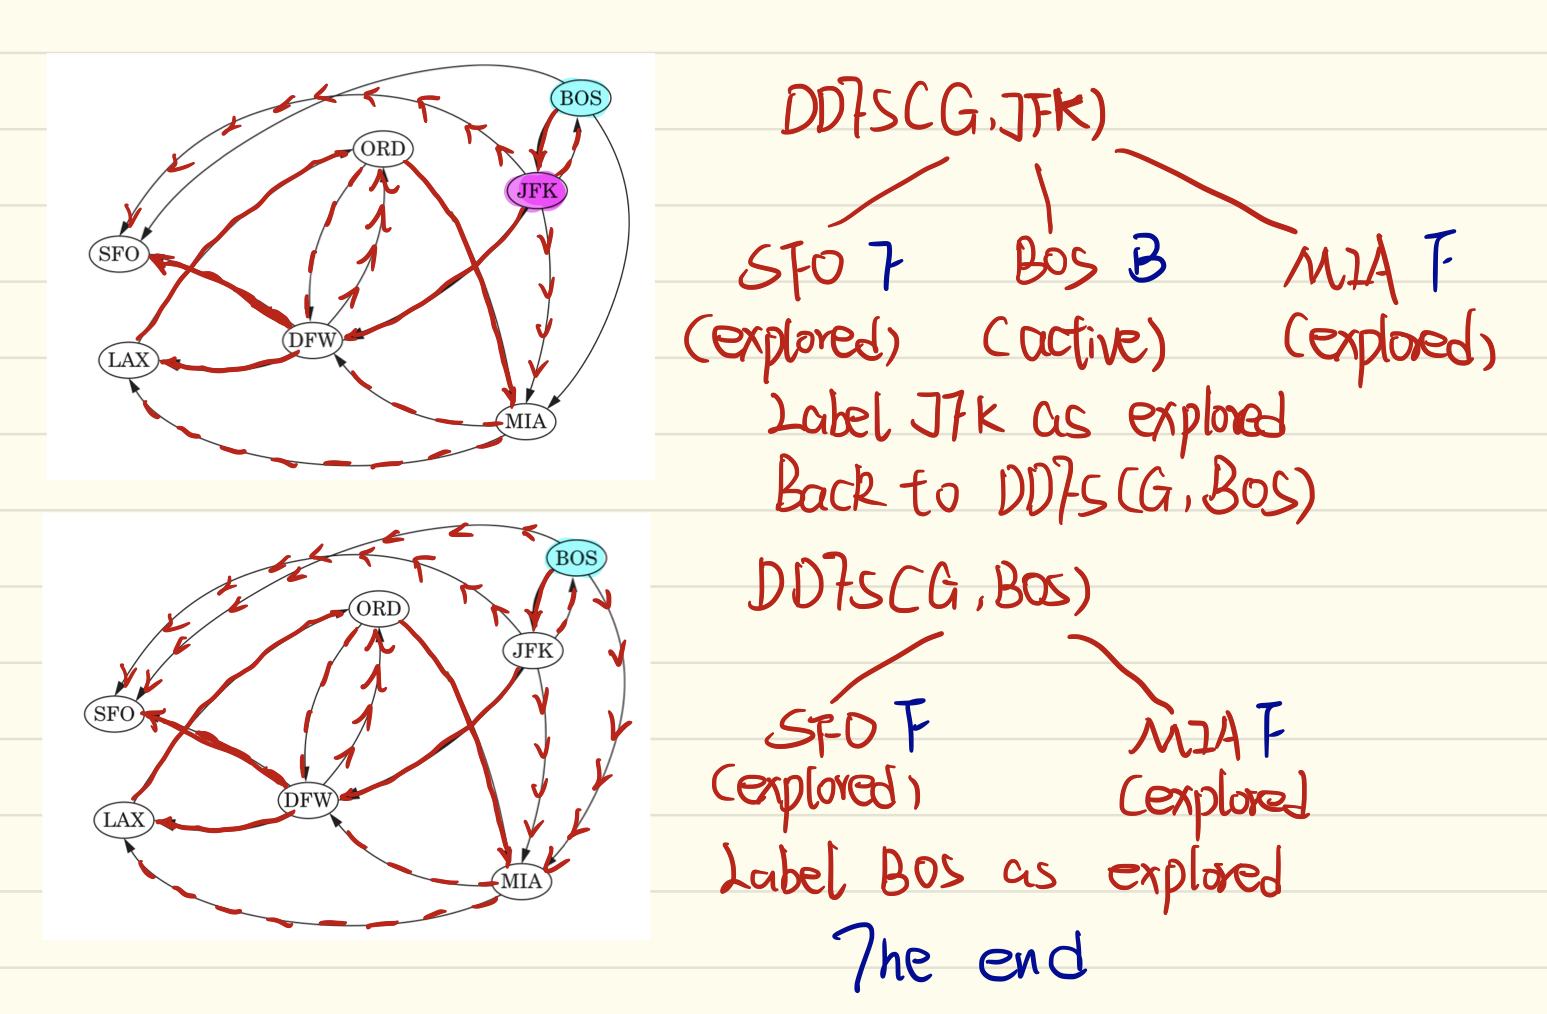 BOS
ORD
JFK
SFO
DFW
LAX
MIA
DDFS(G, JFK)
SFO F BOS B MIA F
(explored) (active) (explored)
Label JFK as explored
Back to DDFS(G, BOS)
BOS
ORD
JFK
SFO
DFW
LAX
MIA
DDFS(G, BOS)
SFO F MIA F
(explored) (explored
Label BOS as explored
The end